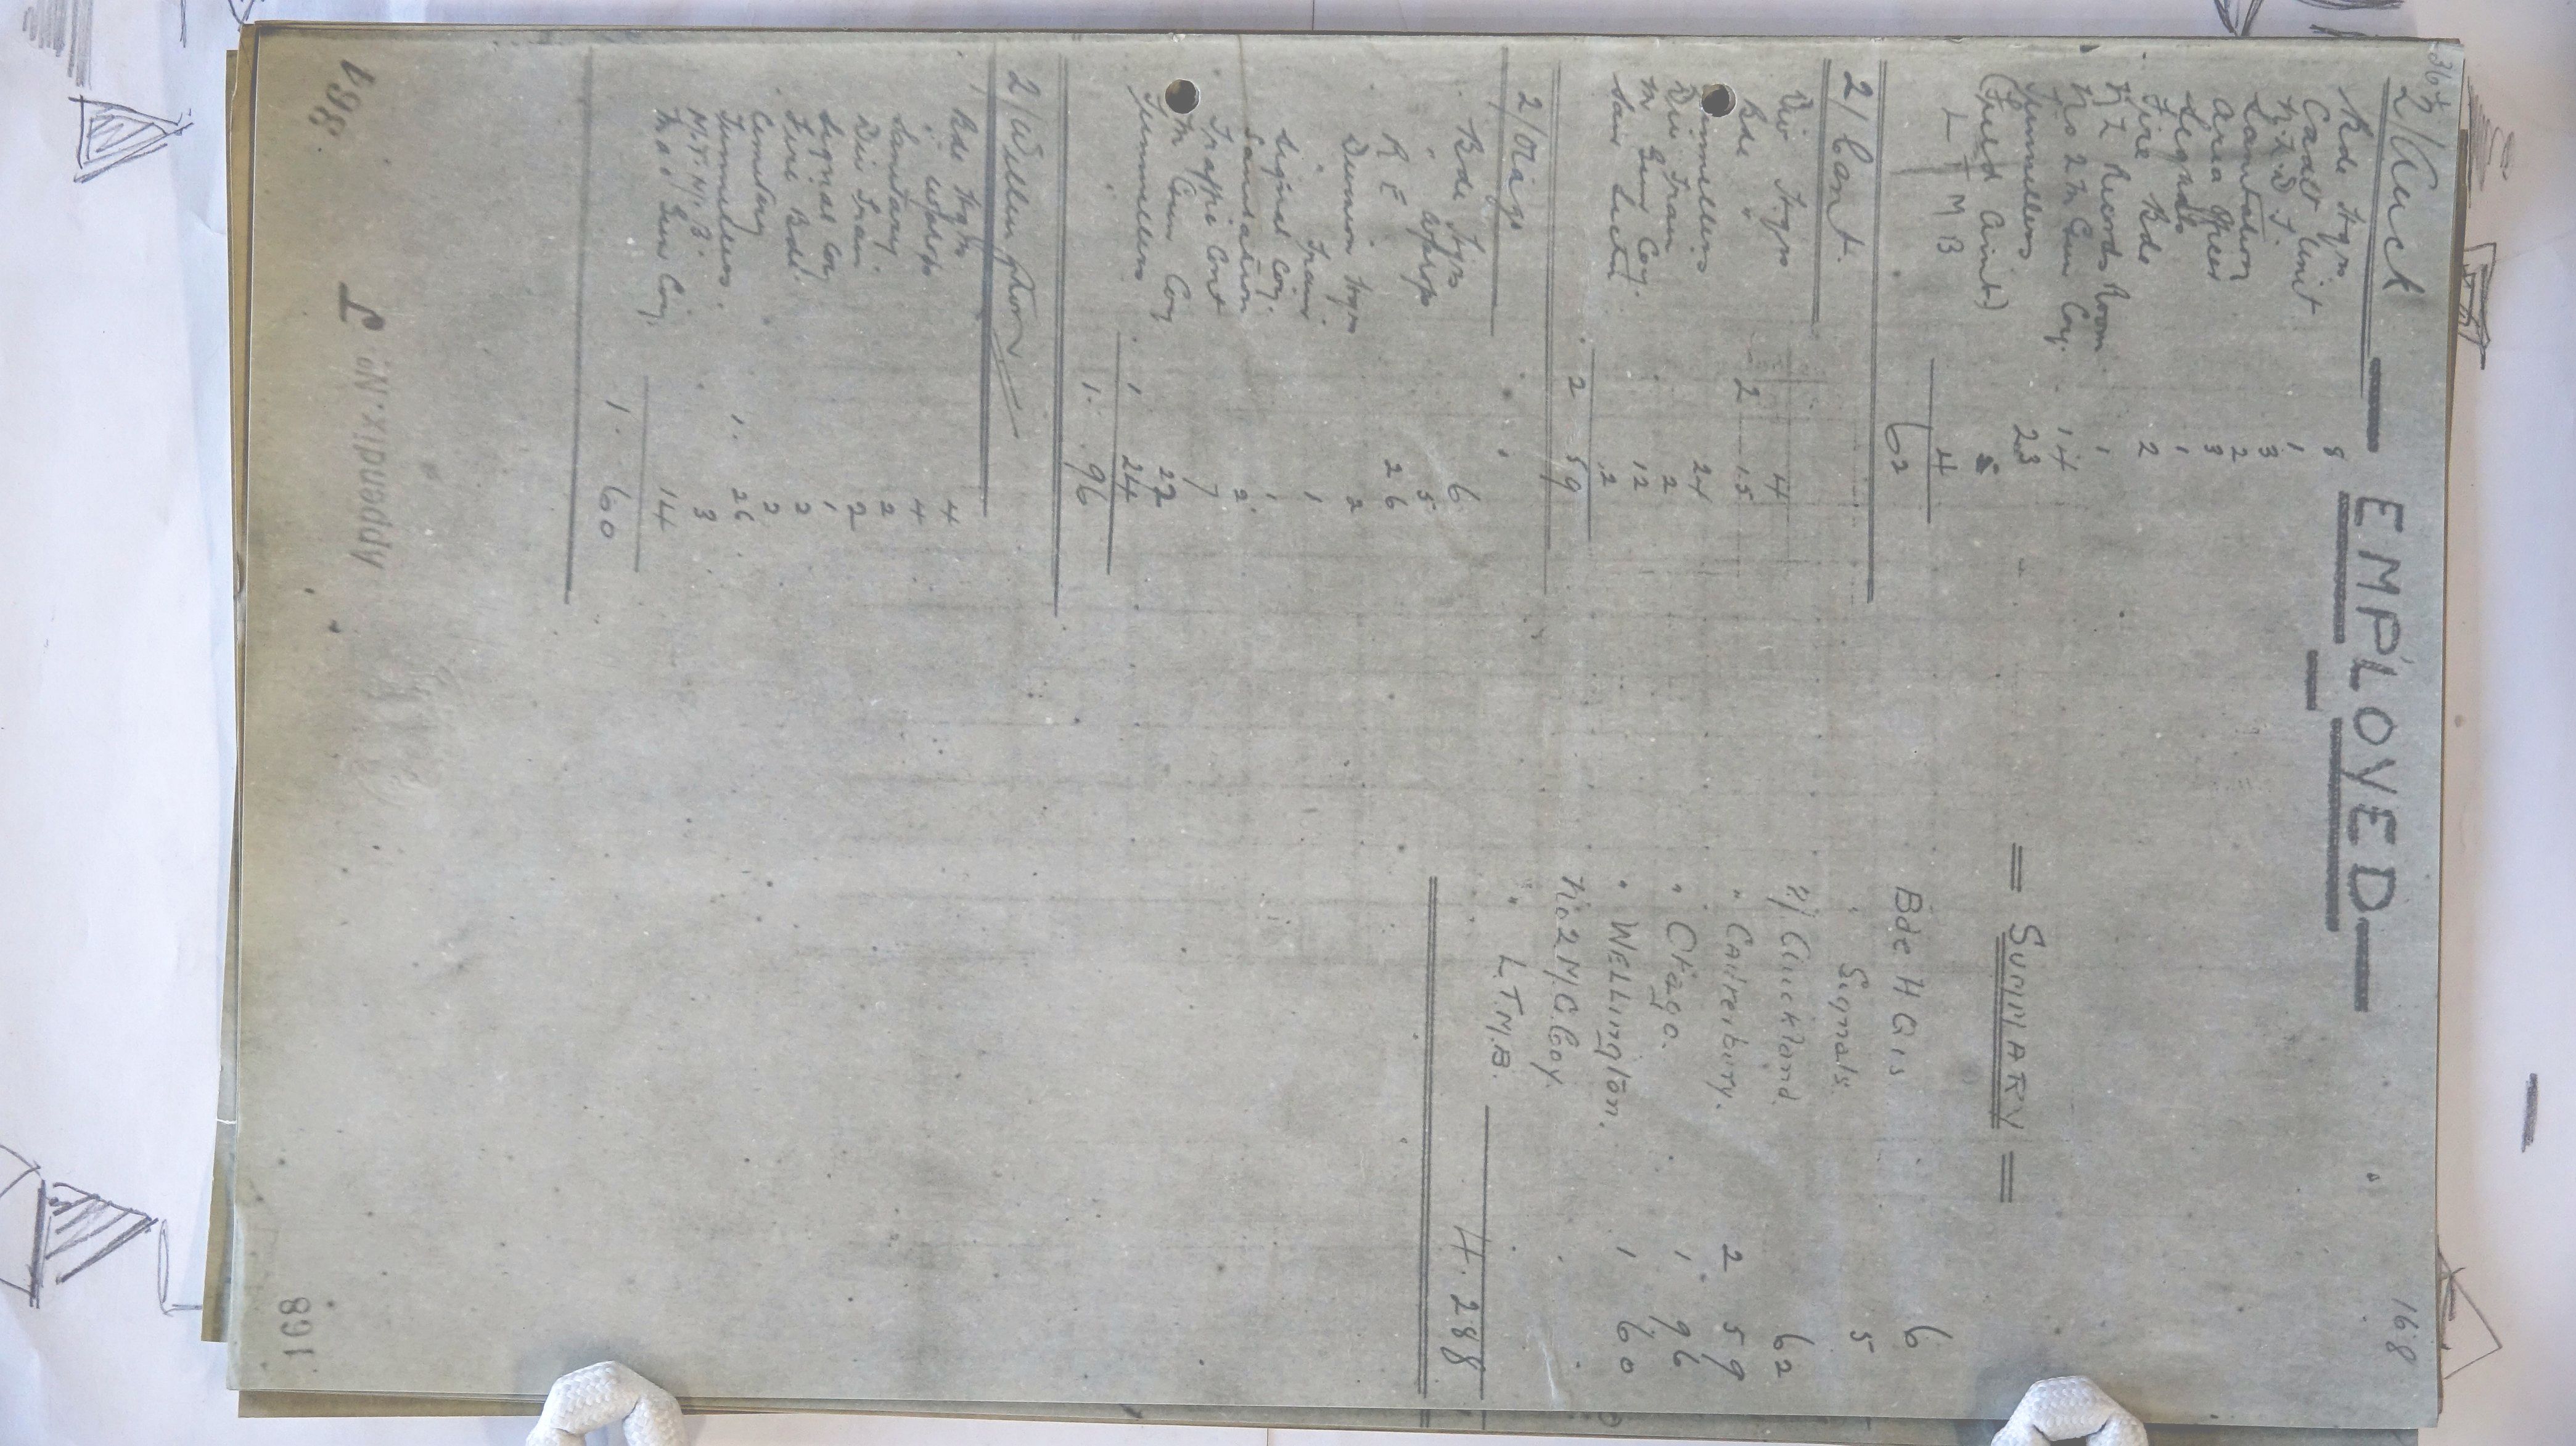 168
— EMPLOYED —
2/Auck
Bde Hqrs 8
Cadet Unit 1
N.Z.D.F. 3
Sanitation 2
Area Officer 3
Signals 1
Fire Bde 2
N Z Records Room 1
No 2 M Gun Coy. 14
Tunnellers 23
(Field Amb)
L T M B 4
62
2/Cant.
Div Hqrs 4
Bde " 2 15
Tunnellers 24
Div Train 2
M Gun Coy. 12
2
2 59
2/Otago
Bde Hqrs 6
" 5
R E 26
Division Hqrs 2
" Train. 1
Signal Coy. 1
Sanitation 2
Traffic Cont 7
M Gun Coy 22
Tunnellers 1 24
1. 96
2/Wellington
Bde Hqrs 4
" 4
Sanitary 2
Div Train. 2
Signal Coy 1
Fire Bde. 2
Cemetery 2
Tunnellers. 1. 26
M.T.M.B. 3
Gun Coy. 14
1. 60
= SUMMARY =
Bde HQrs 6
" Signals. 5
2/Auckland 62
" Canterbury. 2 59
" Otago. 1 96
" Wellington. 1 60
No 2 M.G. Coy.
" L.T.M.B.
4. 288
364
Appendix. No. J
168